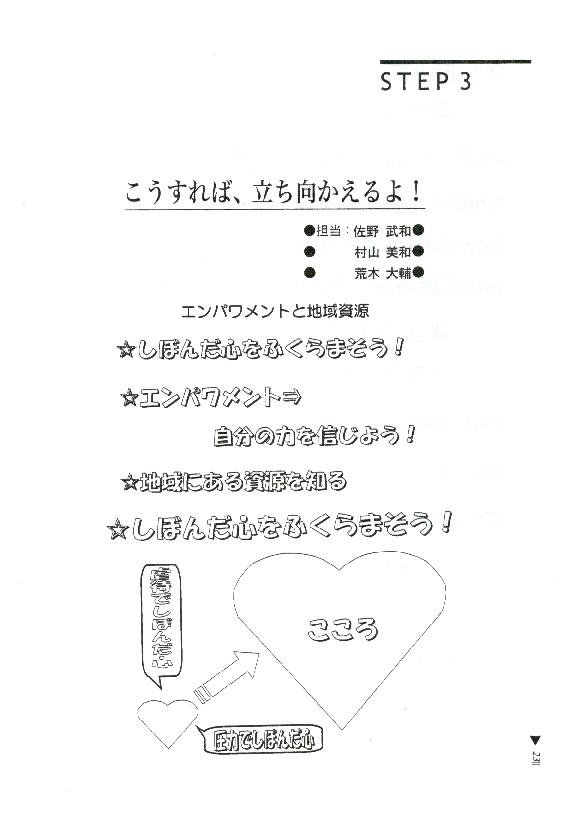 STEP 3
こうすれば、立ち向かえるよ！
●担当：佐野 武和●
● 村山 美和●
● 荒木 大輔●
エンパワメントと地域資源
☆しぼんだ心をふくらまそう！
☆エンパワメント⇒
自分の力を信じよう！
☆地域にある資源を知る
☆しぼんだ心をふくらまそう！
虐待でしぼんだ心
こころ
圧力でしぼんだ心
▼